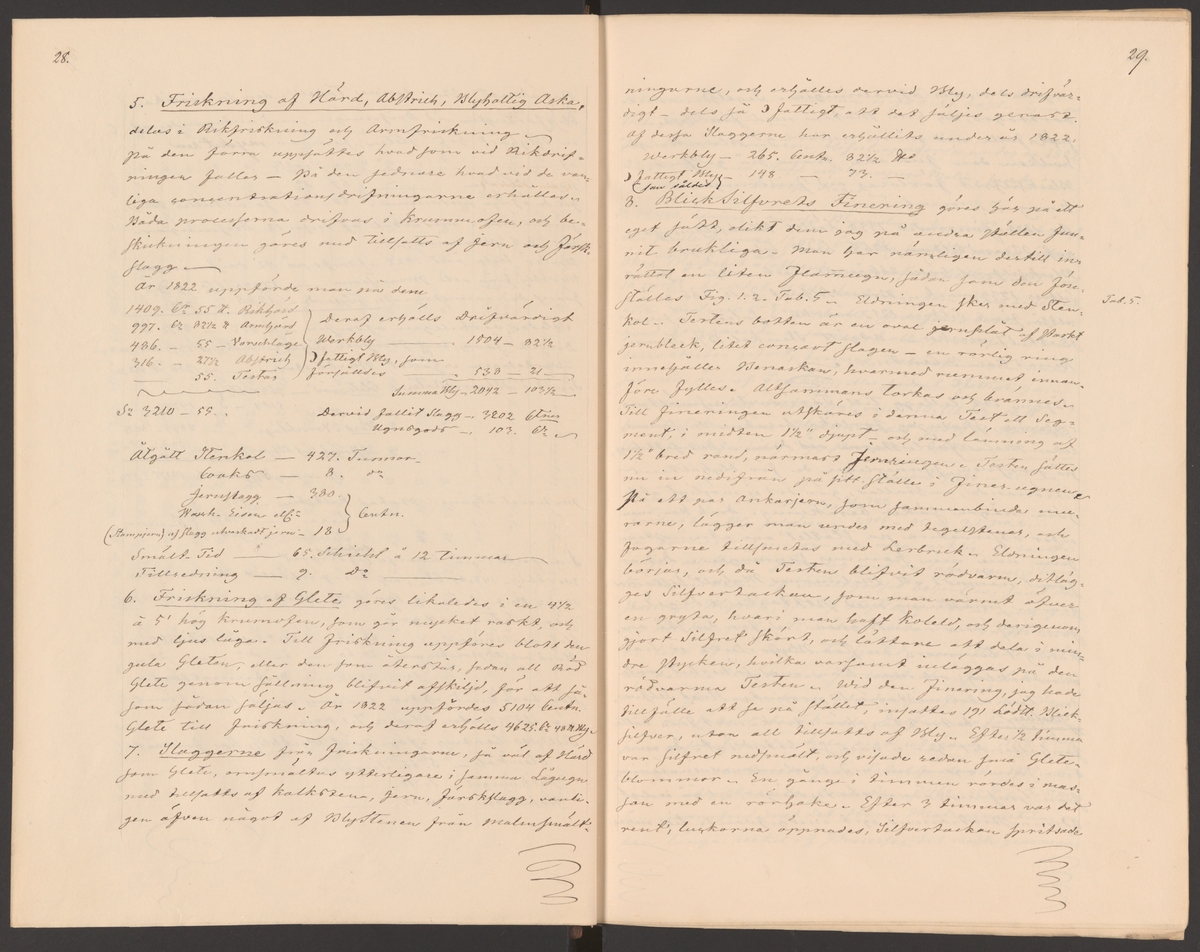 28.
5. Friskning af Härd, Abstrich, Blyhaltig Aska,
delas i Rikfriskning och Armfriskning
På den förra uppsättes hvad som vid Rikdrif-
ningen faller – På den sednare hvad vid de van-
liga concentrationsdrifningarne erhålles.
Båda processerna drifvas i Krummofen, och be-
skickningen göres med tillsatts af Jern och färsk-
slagg
År 1822 uppförde man på dem
1409. Ctr 55 ℔. Rikhärd
997. Ctr 82½ ℔ Armhärd
486. – 55 – Vorschläge
316. – 27½ Abstrich
55. Testar
Sa 3210 – 55.
Deraf erhålls Drifvärdigt
Werkbly — 1504 – 82½
☽ fattigt Bly, som
försåldes — 538 – 21
Summa Bly – 2042 – 103½
Dervid fallit Slagg – 3202 Ctner
Ugnsgods – 103. Ctr
Åtgått Stenkol — 427. Tunnor
Cooks — 8. do
Jernslagg — 380.
Wash-Eisen eller
(Stampjern) af slagg utvaskadt jern – 18
Centn.
Smält-Tid — 65. Schicht à 12 timmar
Tillredning — 9. Do
6. Friskning af Glete göres likaledes i en 4½
à 5' hög krumofen, som går mycket raskt, och
med ljus låga. Till friskning uppföres blott den
gula Gleten, eller den som återstår, sedan all Röd
Glete genom sållning blifvit afskiljd, för att så-
som sådan säljas. År 1822 uppfördes 5104 Centn.
Glete till friskning, och deraf erhålls 4625. Ctr 40 ℔ Bly
7. Slaggerne från friskningarne, så väl af Härd
som Glete, omsmältas ytterligare i samma Lågugn
med tillsatts af kalksten, jern, färskslagg, vanli-
gen äfven något af BlyStenen från Malmsmält-
29.
ningarne, och erhålles dervid Bly, dels drifvär-
digt – dels så ☽ fattigt, att det säljes genast.
Af dessa Slaggerne har erhållits under år 1822.
Werkbly – 265. Centn. 82½ ℔
☽ fattigt Bly – 148 – 73. –
som såldes
8. BlickSilfrets Finering göres här på ett
eget sätt, olikt dem jag på andra ställen fun-
nit brukliga. Man har nämligen dertill in-
rättat en liten Flamugn, sådan som den före-
ställes Fig. 1. 2. Tab. 5. Eldningen sker med Sten-
kol. Testens botten är en oval jernplåt af starkt
jernbleck, litet concavt slagen – en rörlig ring
innehåller Benaskan, hvarmed rummet innan-
före fylles. Altsammans torkas och brännes.
Till fineringen utskäres i denna Test ett Seg-
ment, i midten 1½" djupt – och med lämning af
1½" bred rand, närmast Jernringen. Testen sättes
nu in nedifrån på sitt ställe i Finer-ugnen.
På ett par Ankarjern, som sammanbinda mu-
rarne, lägger man under med tegelstenar, och
fogarne tillsmetas med Lerbruk. Eldningen
börjas, och då Testen blifvit rödvarm, ditläg-
ges Silfvertackan, som man värmt öfver
en gryta, hvari man haft koleld, och derigenom
gjort Silfret skört, och lättare att dela i min-
dre stycken, hvilka varsamt inläggas på den
rödvarma Testen. Wid den Finering, jag hade
tillfälle att se på stället, insattes 191 Lödt. Blick-
silfver, utan all tillsatts af Bly. Efter ½ timma
var Silfret nedsmält, och visade redan små Glete-
blommor. En gång i timmen rördes i mas-
san med en rörhake. Efter 3 timmar var det
rent; luckorna öppnades, Silfvertackan spritsade
Tab. 5.